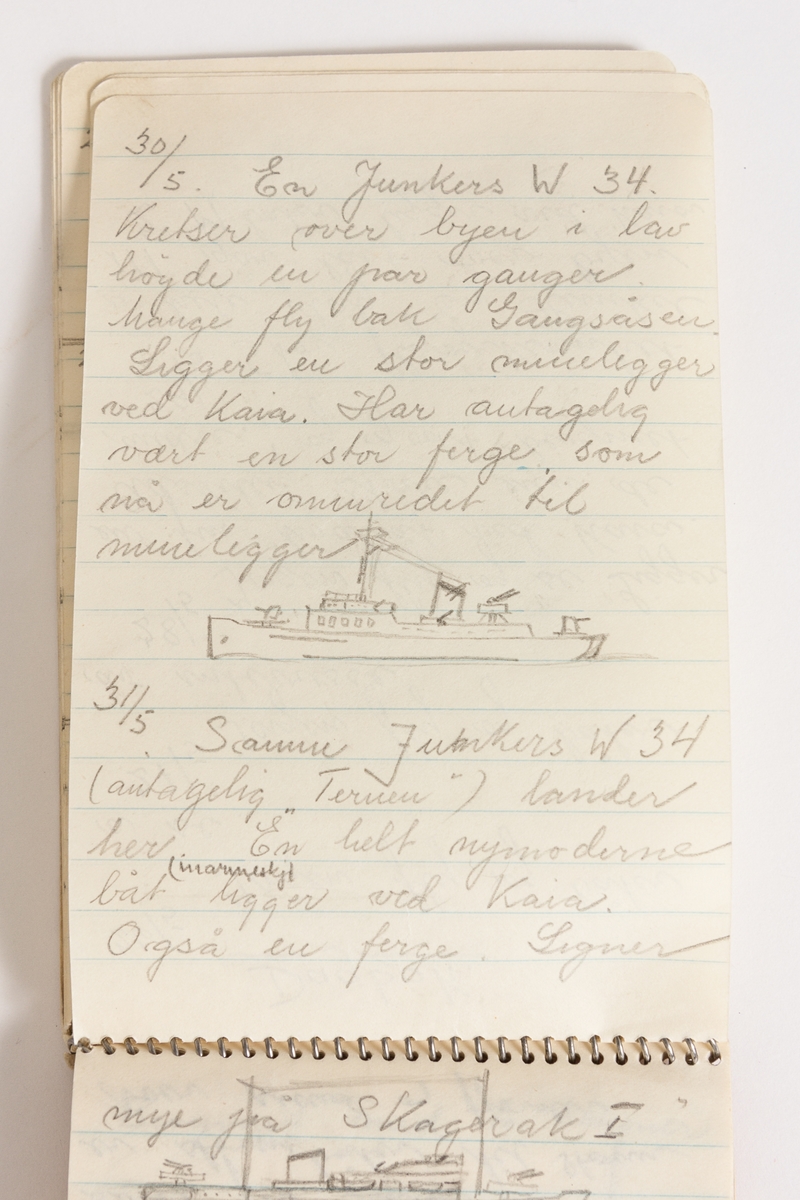 30/5. En Junkers W 34.
Kretser over byen i lav
höyde en par ganger.
Mange fly bak Gangsåsen.
Ligger en stor minelegger
ved Kaia. Har antagelig
vært en stor ferge, som
nå er ominredet til
minelegger
31/5. Samme Junkers W 34
(antagelig „Ternen") lander
her. En helt nymoderne
(marineskj
båt ligger ved Kaia.
Også en ferge. Ligner
mye på SKagerak I"